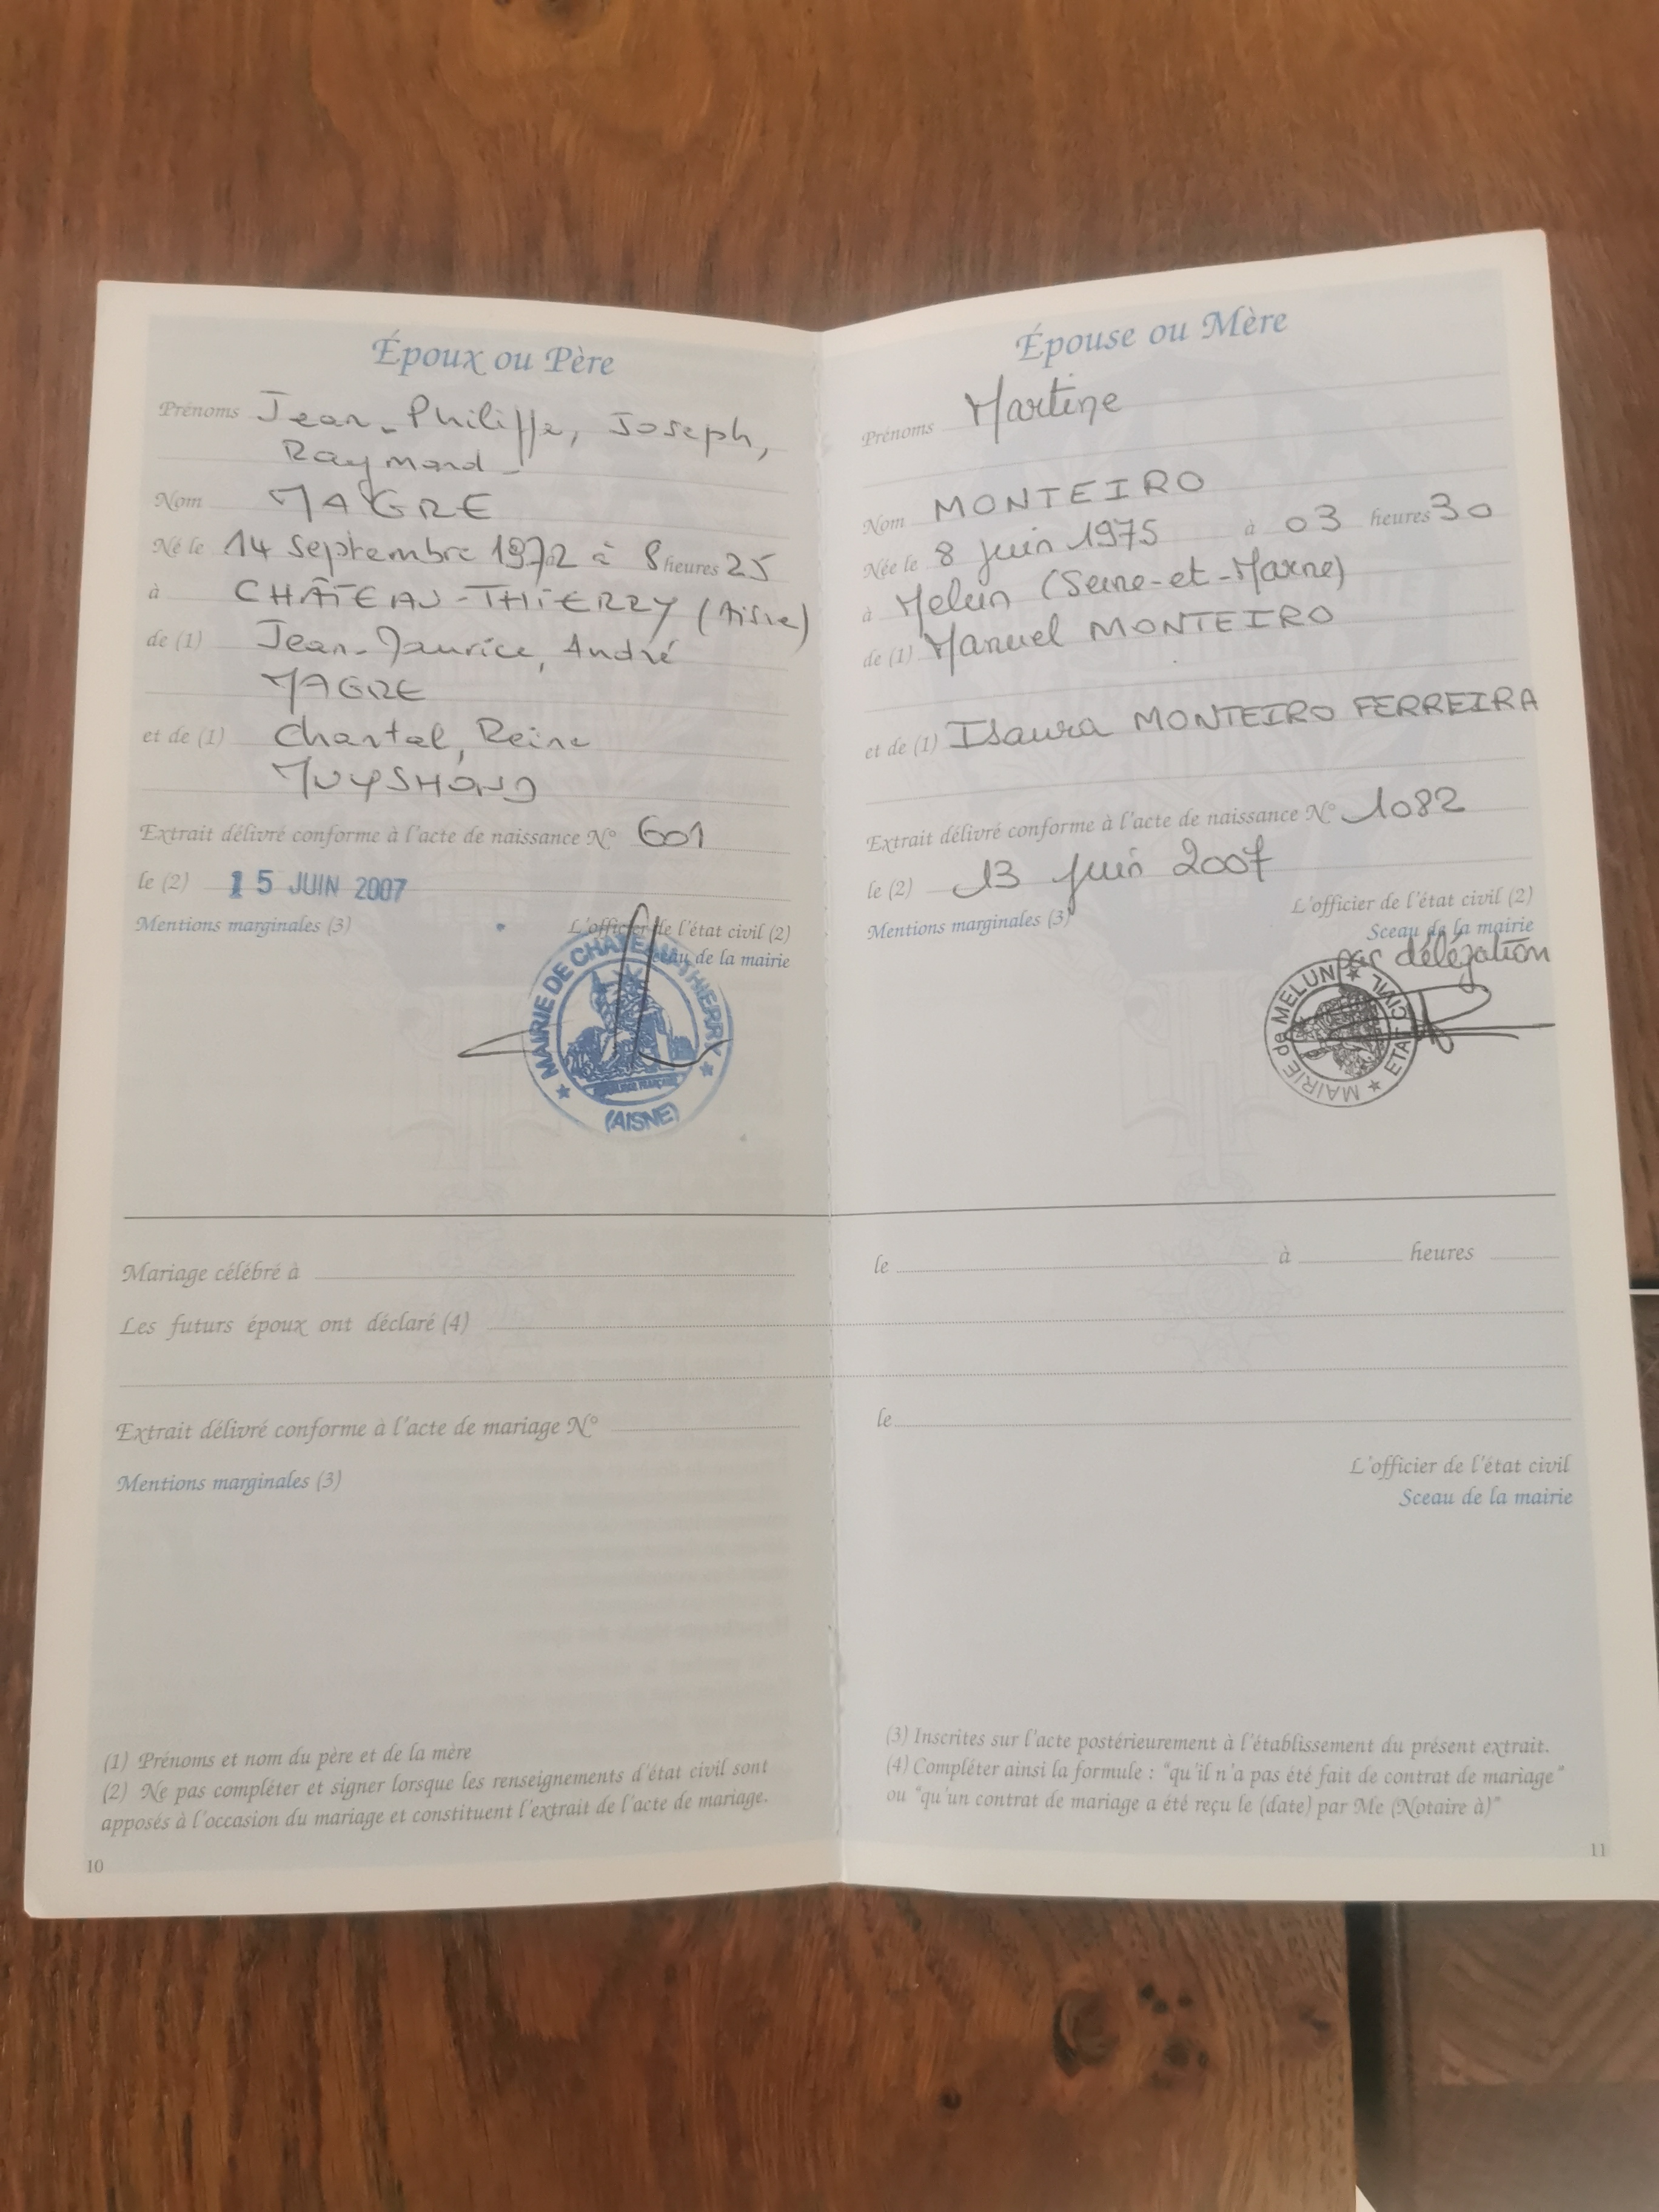 Époux ou Père
Prénoms Jean-Philippe, Joseph,
Raymond
Nom MAGRE
Né le 14 Septembre 1972 à 8 heures 25
à CHÂTEAU-THIERRY (Aisne)
de (1) Jean-Maurice, André
MAGRE
et de (1) Chantal, Reine
MUYSHOND
Extrait délivré conforme à l'acte de naissance N° 601
le (2) 15 JUIN 2007
Mentions marginales (3)
L'officier de l'état civil (2)
Sceau de la mairie
MAIRIE DE CHATEAU-THIERRY
RÉPUBLIQUE FRANÇAISE
(AISNE)
Épouse ou Mère
Prénoms Martine
Nom MONTEIRO
Née le 8 juin 1975 à 03 heures 30
à Melun (Seine-et-Marne)
de (1) Manuel MONTEIRO
et de (1) Isaura MONTEIRO FERREIRA
Extrait délivré conforme à l'acte de naissance N° 1082
le (2) 13 juin 2007
Mentions marginales (3)
L'officier de l'état civil (2)
Sceau de la mairie
par délégation
MAIRIE de MELUN
ETAT CIVIL
Mariage célébré à le à heures
Les futurs époux ont déclaré (4)
Extrait délivré conforme à l'acte de mariage N° le
Mentions marginales (3)
L'officier de l'état civil
Sceau de la mairie
(1) Prénoms et nom du père et de la mère
(2) Ne pas compléter et signer lorsque les renseignements d'état civil sont
apposés à l'occasion du mariage et constituent l'extrait de l'acte de mariage.
10
(3) Inscrites sur l'acte postérieurement à l'établissement du présent extrait.
(4) Compléter ainsi la formule : "qu'il n'a pas été fait de contrat de mariage"
ou "qu'un contrat de mariage a été reçu le (date) par Me (Notaire à)"
11